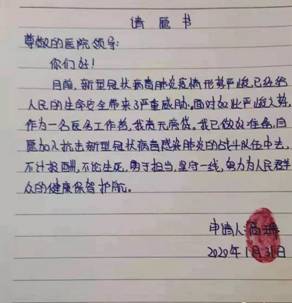 请愿书
尊敬的医院领导:
你们好!
目前,新型冠状病毒肺炎疫情形势严峻,已经给
人民的生命安全带来了严重威胁,面对如此严峻之势,
作为一名医务工作者,我责无旁贷。我已做好准备,自
愿加入抗击新型冠状病毒感染肺炎的战斗队伍中去,
不计报酬,不论生死,勇于担当,坚守一线,努力为人民群
众的健康保驾护航。
申请人:
2020年1月31日